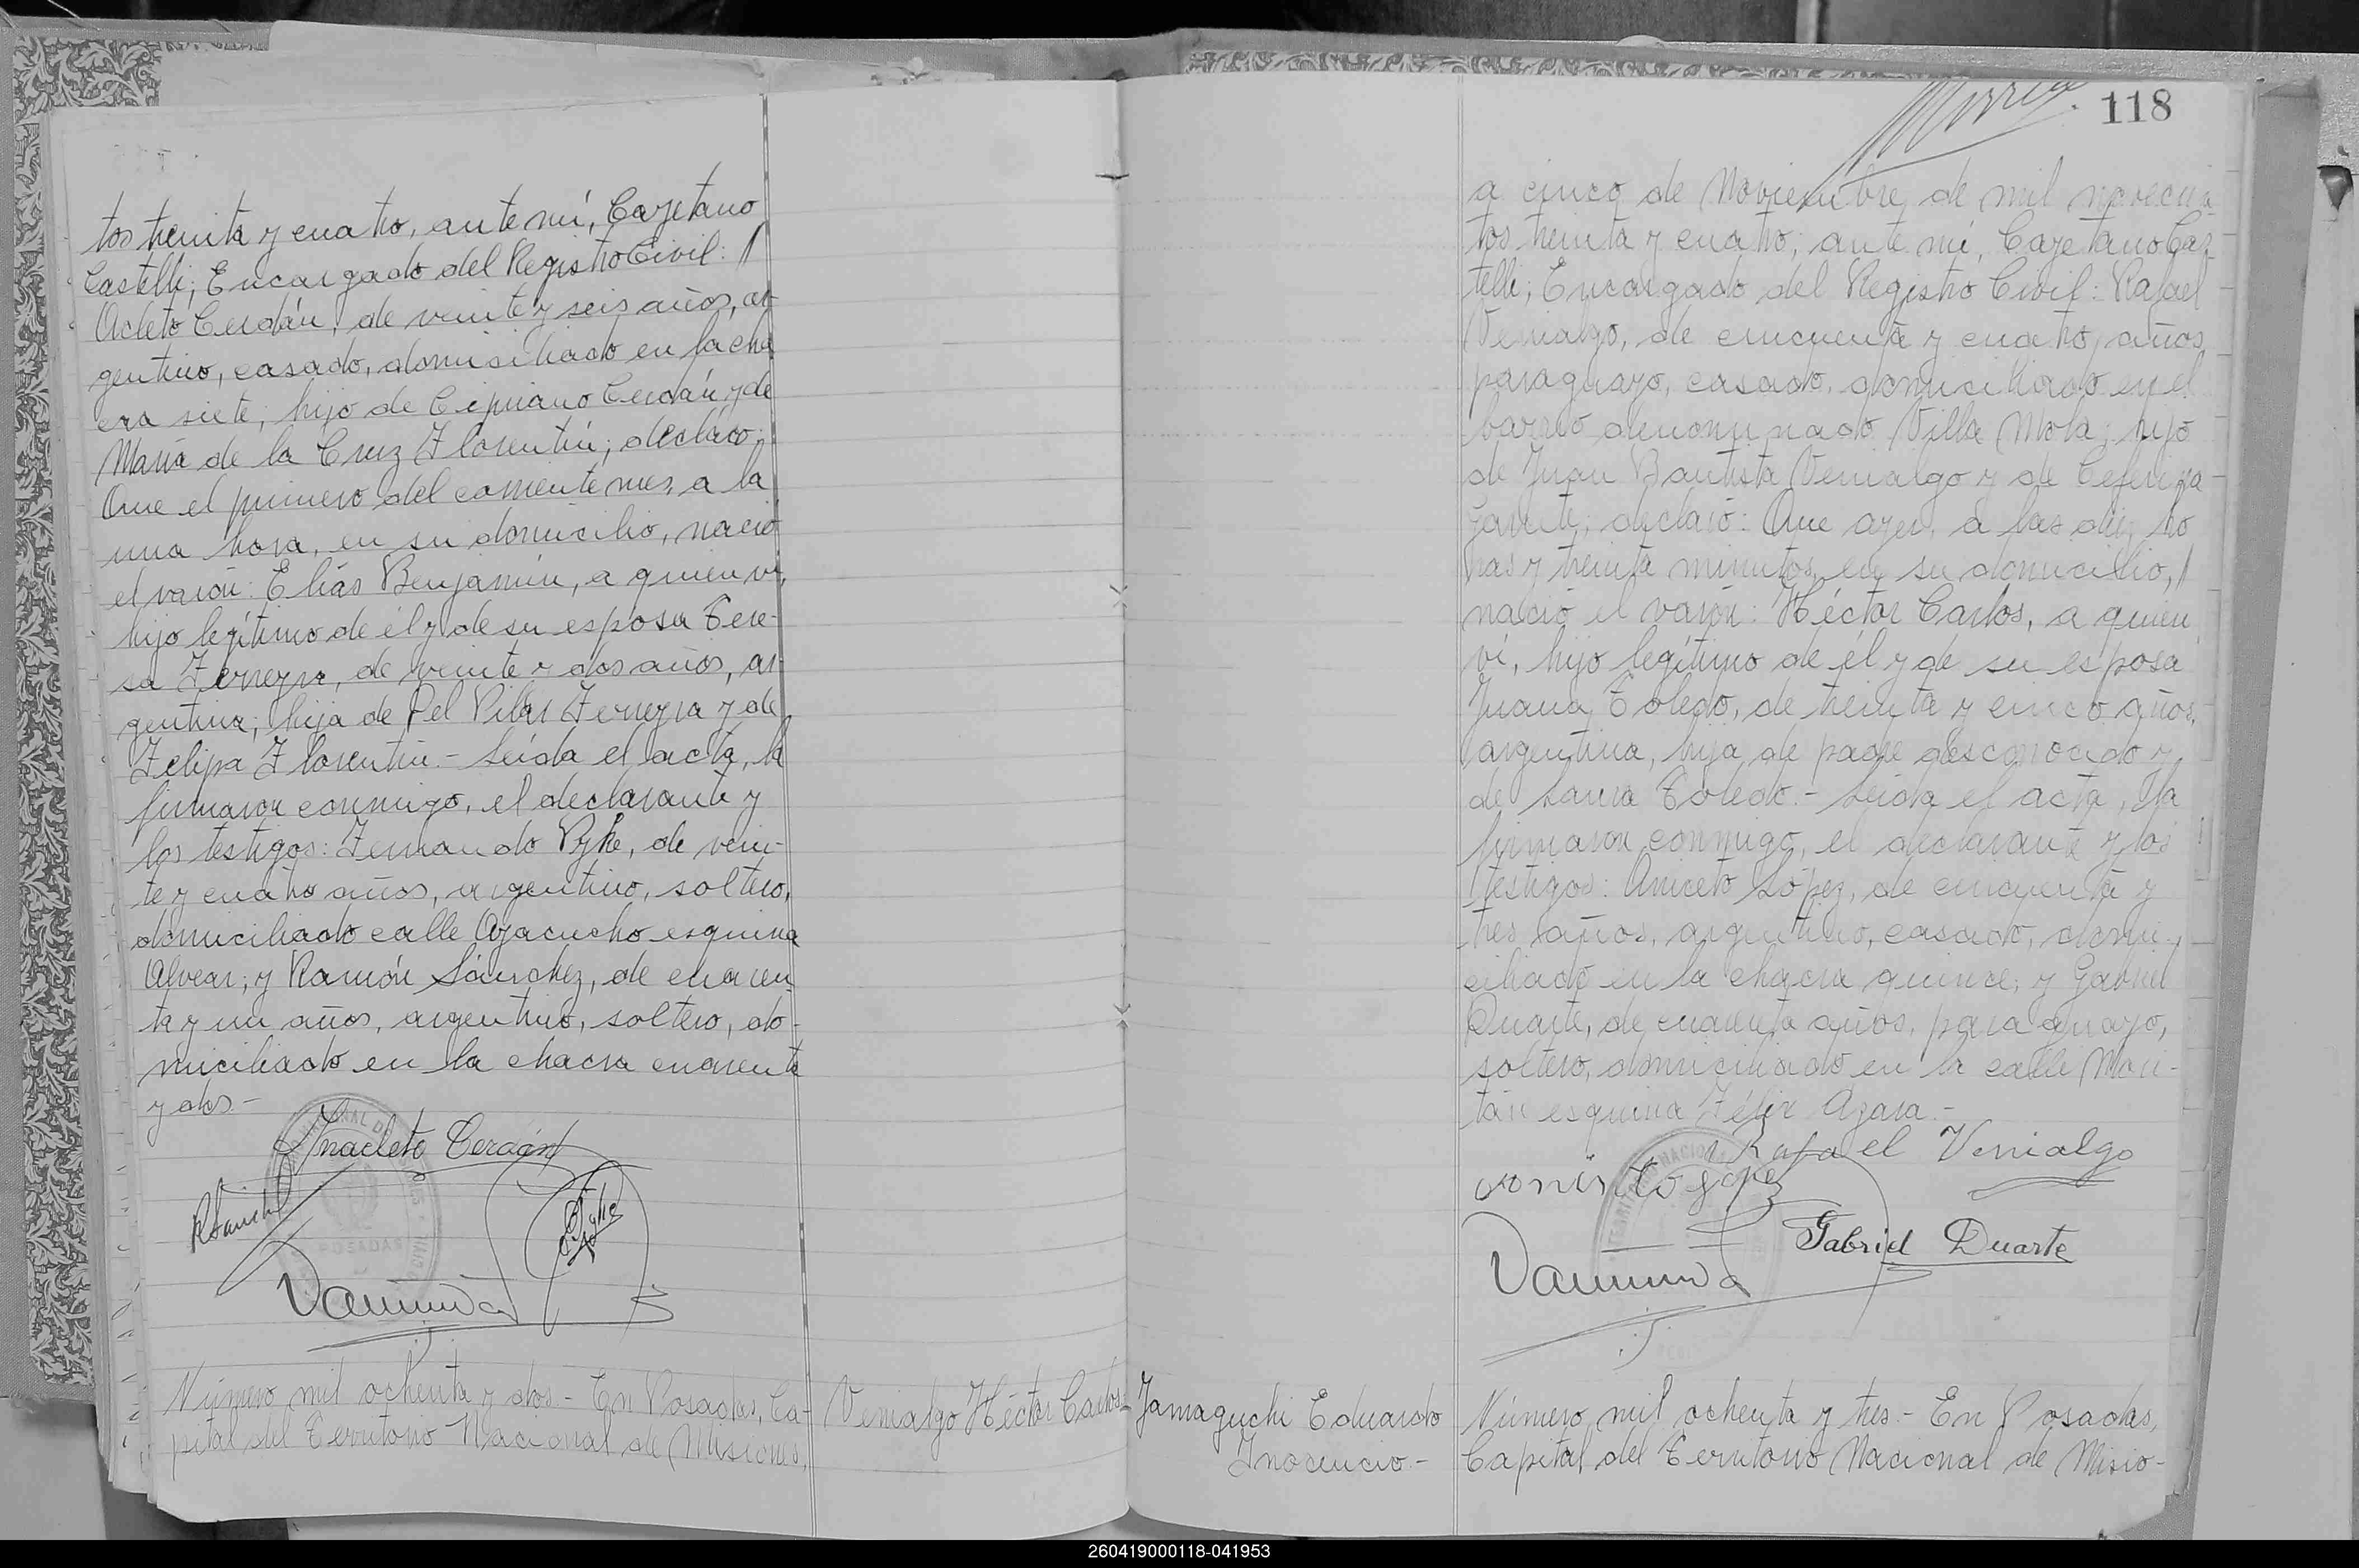 tos treinta y cuatro, ante mí, Cayetano
Castelli; Encargado del Registro Civil:
Acleto Cerdán, de veinte y seis años, ar-
gentino, casado, domiciliado en la cha
cra siete; hijo de Cipriano Cerdán y de
María de la Cruz Florentín; declaró:
Que el primero del corriente mes, a la
una hora, en su domicilio, nació
el varón: Elías Benjamín, a quien vi,
hijo legítimo de él y de su esposa Tere-
sa Ferreyra, de veinte y dos años, ar-
gentina; hija de Del Pilar Ferreyra y de
Felipa Florentín.- Leída el acta, la
firmaron conmigo, el declarante y
los testigos: Fernando Pyke, de vein-
te y cuatro años, argentino, soltero,
domiciliado calle Ayacucho esquina
Alvear; y Ramón Sánchez, de cuaren-
ta y un años, argentino, soltero, do-
miciliado en la chacra cuarenta
y dos.-
Anacleto Cerdán
POSADAS
Número mil ochenta y dos.- En Posadas, Ca-
pital del Territorio Nacional de Misiones,
Venialgo Héctor Carlos-
118
a cinco de Noviembre de mil novecien-
tos treinta y cuatro; ante mí, Cayetano Cas-
telli; Encargado del Registro Civil: Rafael
Venialgo, de cincuenta y cuatro años
paraguayo, casado, domiciliado en el
barrio denominado Villa Mola; hijo
de Juan Bautista Venialgo y de Ceferina
declaró: Que ayer, a las diez ho
ras y treinta minutos, en su domicilio,
nació el varón: Héctor Carlos, a quien
vi, hijo legítimo de él y de su esposa
Juana Toledo, de treinta y cinco años,
argentina, hija de padre desconocido y
de Laura Toledo.- Leída el acta, la
firmaron conmigo, el declarante y los
testigos: Aniceto López, de cincuenta y
tres años, argentino, casado, domi-
ciliado en la chacra quince; y Gabriel
Duarte, de cuarenta años, paraguayo,
soltero, domiciliado en la calle
esquina Félix Azara.-
Rafael Venialgo
Gabriel Duarte
Yamaguchi Eduardo
Inocencio-
Número mil ochenta y tres.- En Posadas,
Capital del Territorio Nacional de Misio-
260419000118-041953